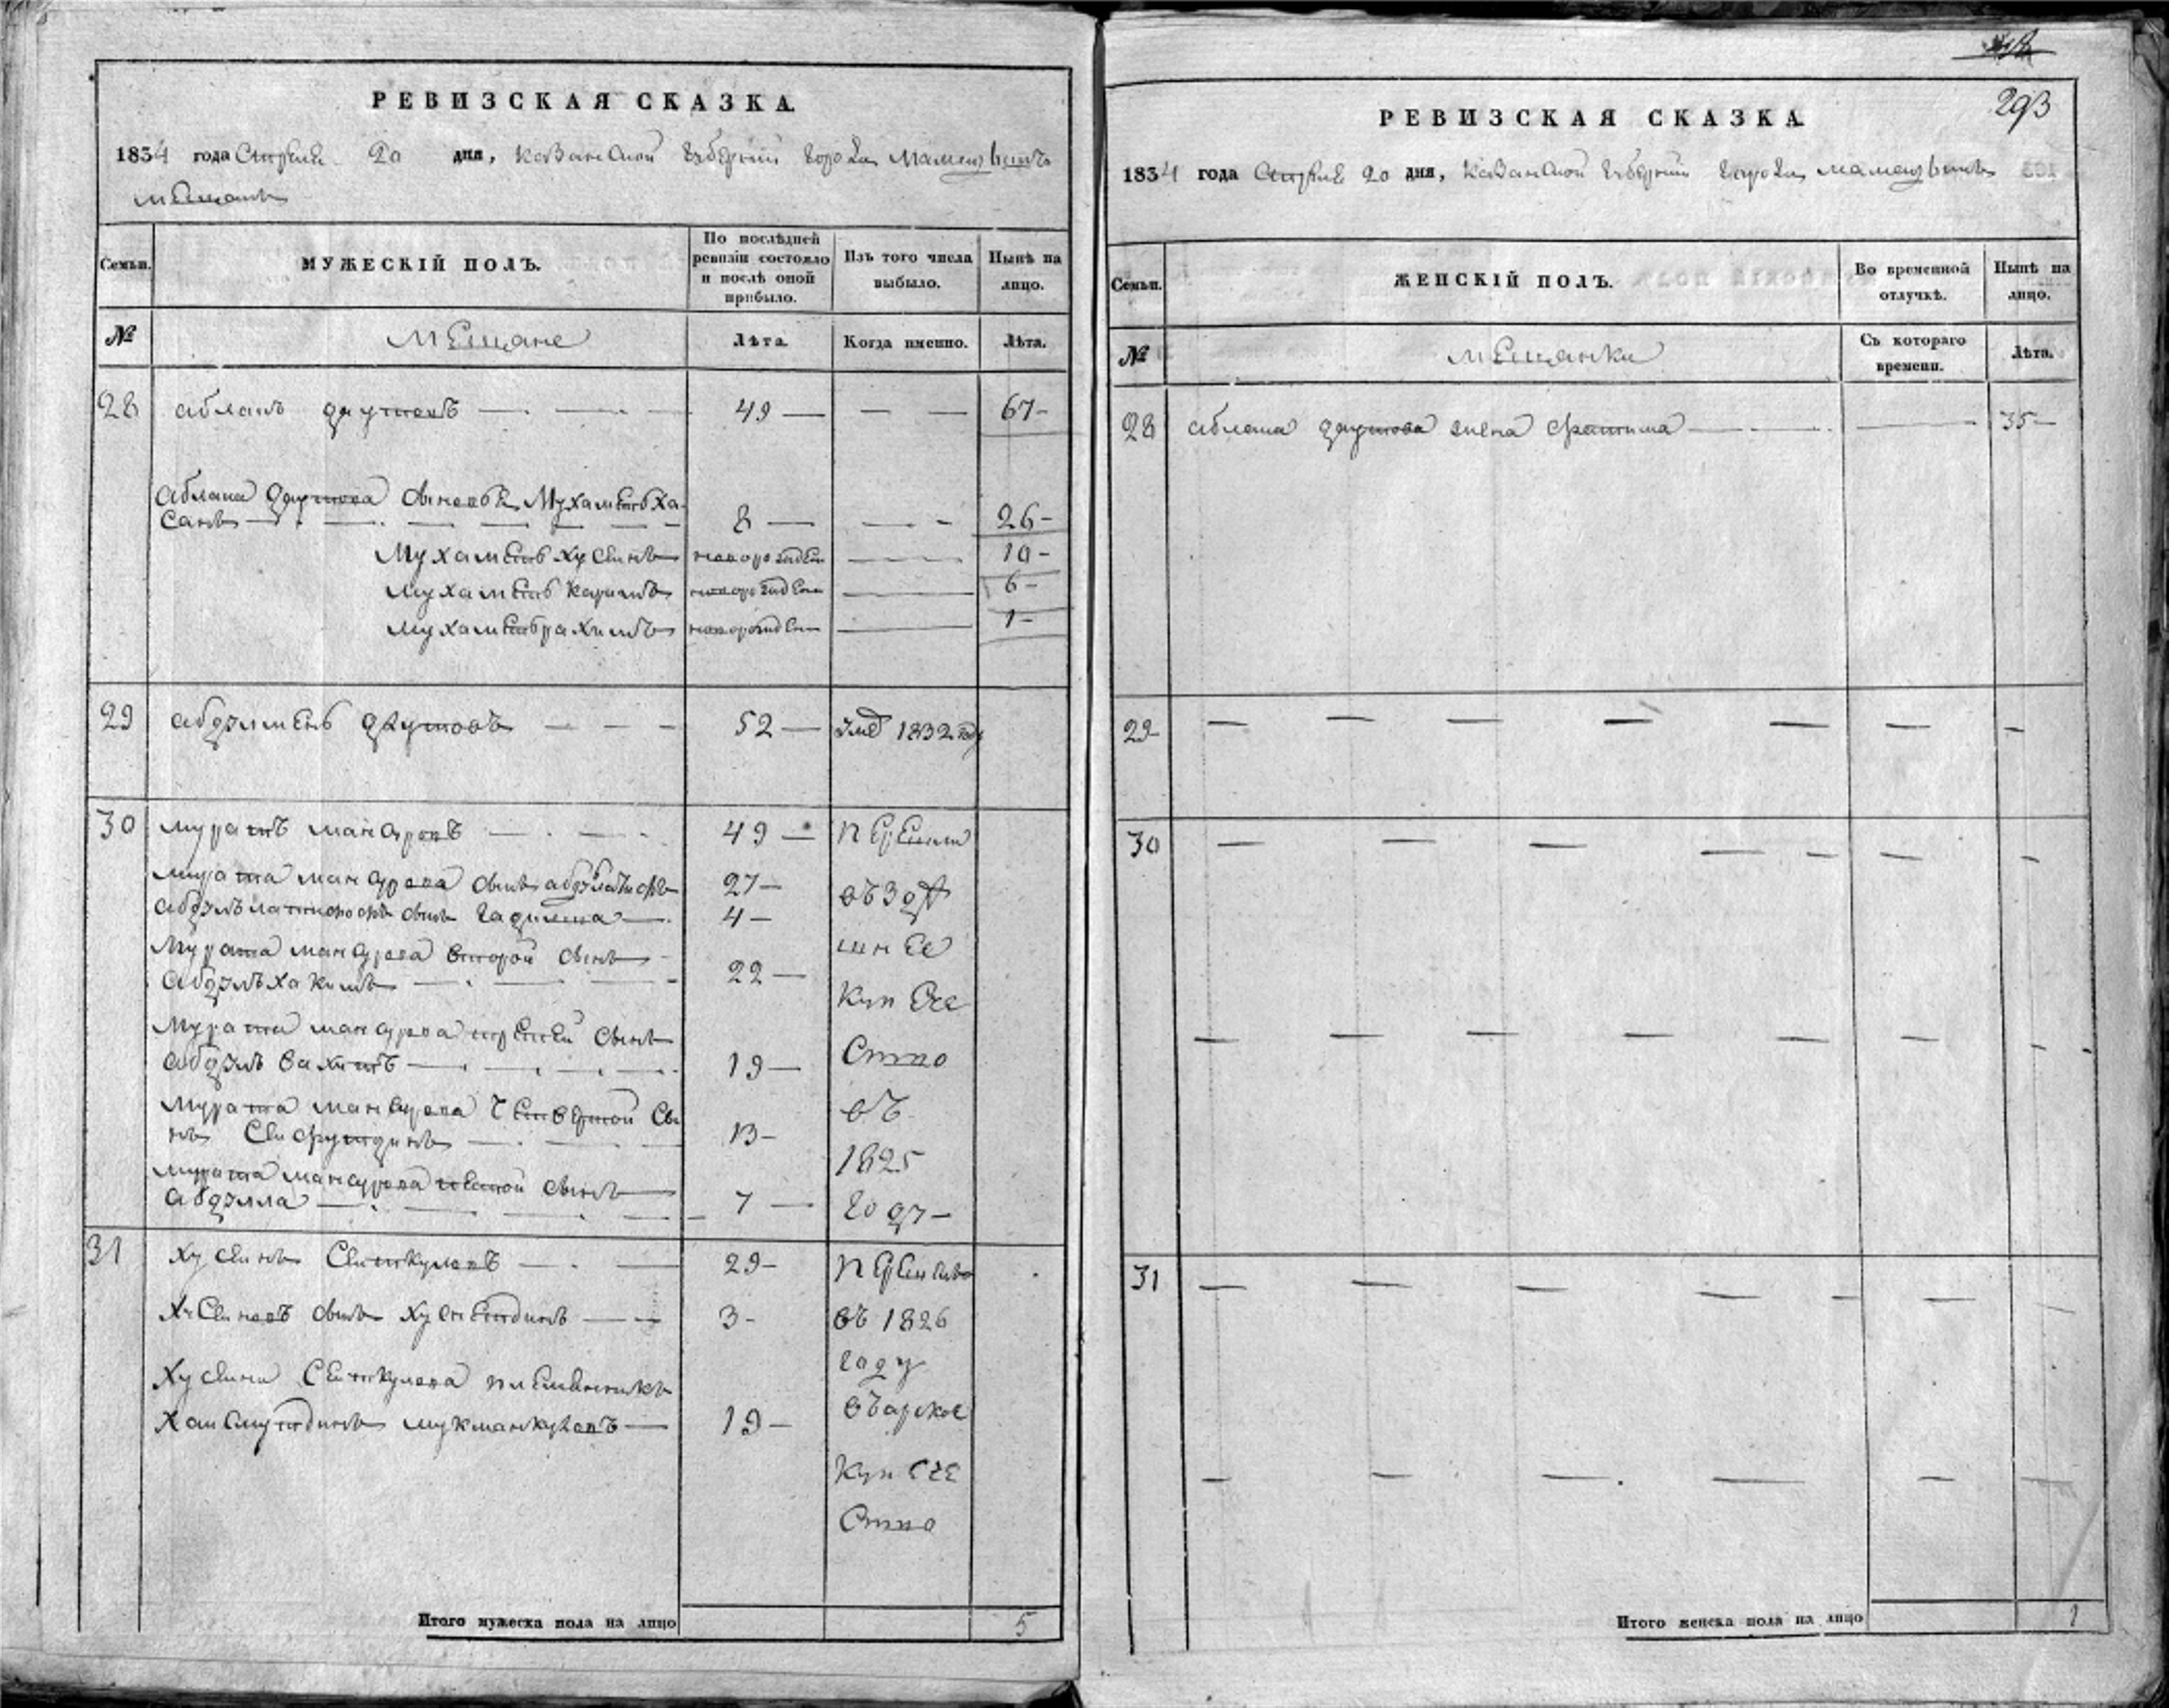 293
РЕВИЗСКАЯ СКАЗКА
1834 года Апреля 20 дня, Казанской губернии города Мамадышъ
мещанъ
Семьи.
МУЖЕСКІЙ ПОЛЪ.
По послѣдней ревизіи состояло и послѣ оной прибыло.
Изъ того числа выбыло.
Нынѣ на лицо.
№
мещане
Лѣта.
Когда именно.
Лѣта.
28 аблаль даутовъ 49 67
аблала даутова сыновья Мухаметъ ха-
санъ 8 26
Мухаметъ хусеинъ новорожден 10
Мухаметъ каримъ новорожден 6
Мухаметъ рахимъ новорожден 1
29 абдулменъ даутовъ 52 умре 1832 году
30 муратъ мансуровъ 49 перешли
мурата мансурова сынъ абдулатифъ 27 въ зде
абдулълатифовъ сынъ гадилша 4
мурата мансурова второй сынъ шнее
абдулъ хакимъ 22 купече
мурата мансурова третей сынъ ство
абдулъ вахитъ 19
мурата мансурова четвертой сы въ
нъ Сеифутдинъ 13
1825
мурата мансурова пятой сынъ
абдулла 7 году
31 хусеинъ Сеиткуловъ 29 перешелъ
хусеиновъ сынъ хуснетдинъ 3 въ 1826
году
хусеина Сеиткулова племянникъ
хаисмутдинъ мукманкуловъ 19 въ арское
купече
ство
Итого мужеска пола на лицо 5
РЕВИЗСКАЯ СКАЗКА
1834 года Апреля 20 дня, Казанской губернии города Мамадышъ
Семьи.
ЖЕНСКІЙ ПОЛЪ.
Во временной отлучкѣ.
Нынѣ на лицо.
№
мещанки
Съ котораго времени.
Лѣта.
28 аблала даутова жена фатима 35
29
30
31
Итого женска пола на лицо 1